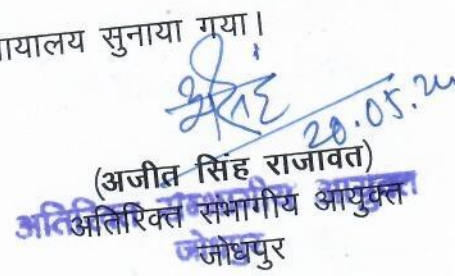 यायालय सुनाया गया।
20.05.24
(अजीत सिंह राजावत)
अतिरिक्त संभागीय आयुक्त
जोधपुर
अतिरिक्त संभागीय आयुक्त
जोधपुर